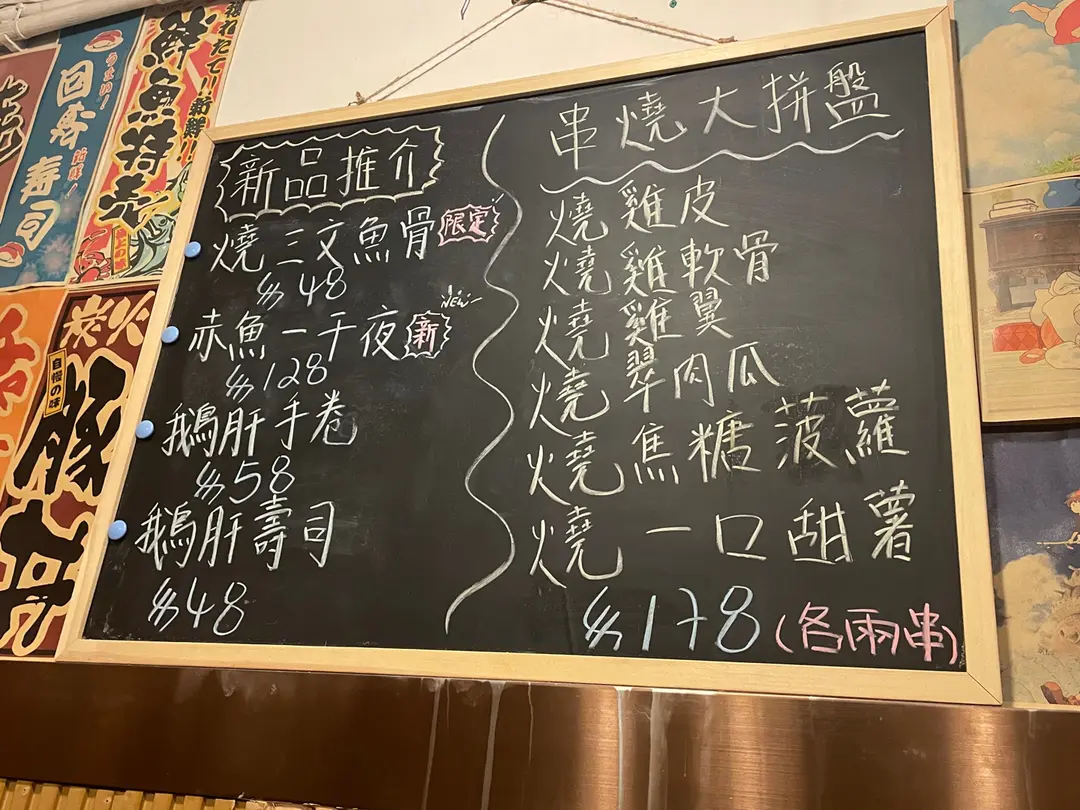 新品推介
燒三文魚骨 限定
$48
赤魚一干夜 新 NEW
$128
鵝肝手卷
$58
鵝肝壽司
$48
串燒大拼盤
燒雞皮
燒雞軟骨
燒雞翼
燒翠肉瓜
燒焦糖菠蘿
燒一口甜薯
$178 (各兩串)
回転寿司
うまい!
新鮮!
鮮魚特売
炭火
自慢の味
豚丼